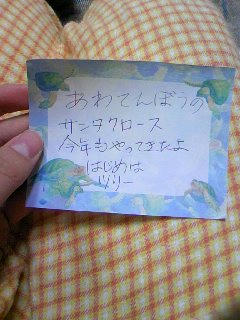 あわてんぼうの
サンタクロース
今年もやってきたよ
はじめは
ツリー